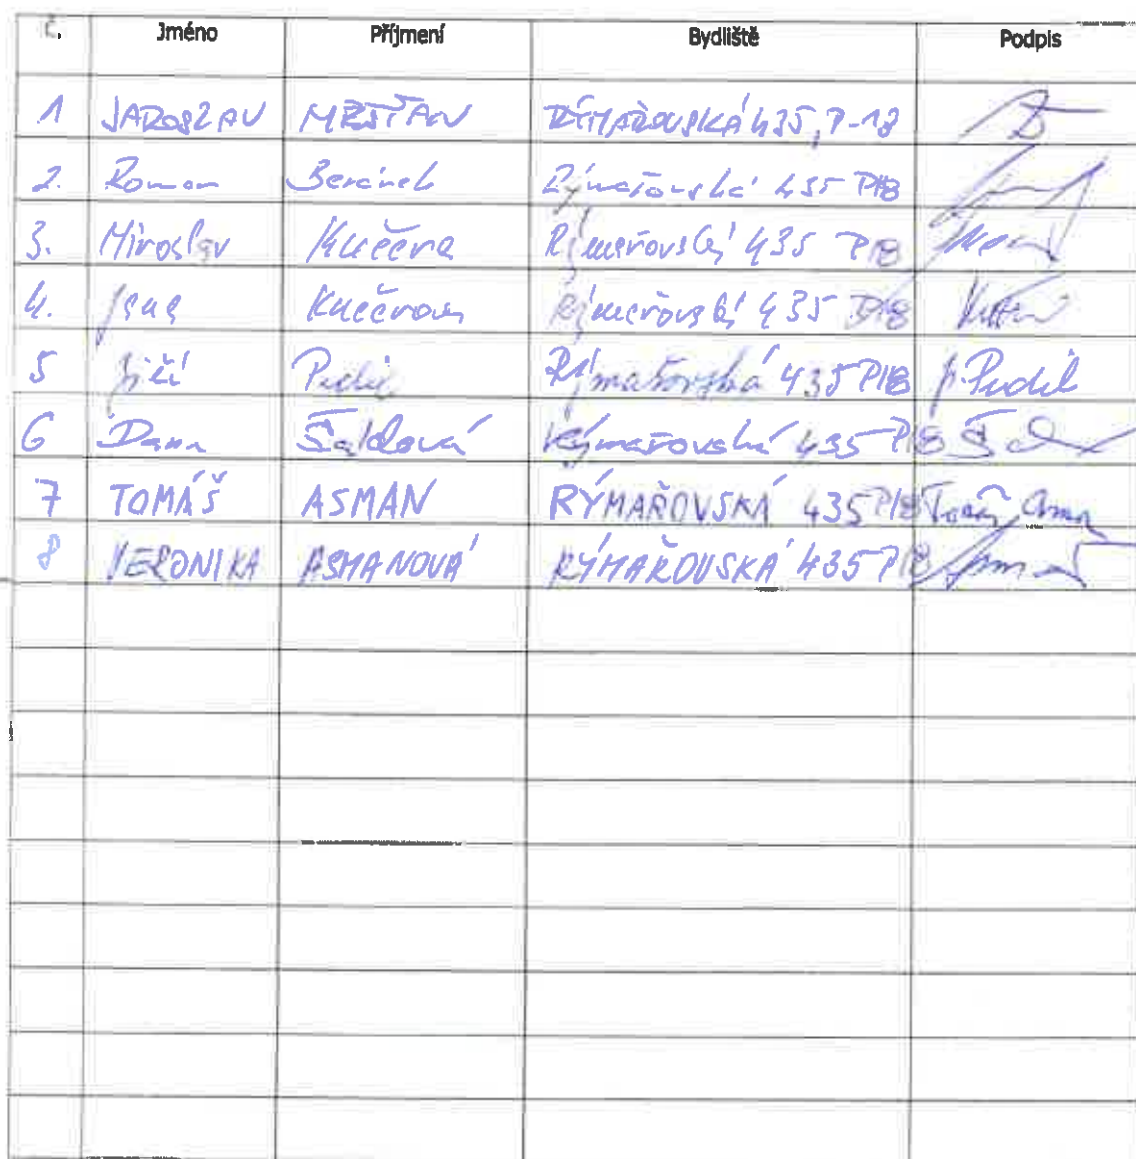 č. Jméno Příjmení Bydliště Podpis
1 JAROSLAV MĚŠŤAN RÝMAŘOVSKÁ 435, P-18
2. Roman Beránek Rýmařovská 435 P18
3. Miroslav Kučera Rýmařovská 435 P18
4. Jana Kučerová Rýmařovská 435 P18
5 Jiří Pudil Rýmařovská 435 P18 J. Pudil
6 Dana Šaldová Rýmařovská 435 P18
7 TOMÁŠ ASMAN RÝMAŘOVSKÁ 435 P18
8 VERONIKA ASMANOVÁ RÝMAŘOVSKÁ 435 P18